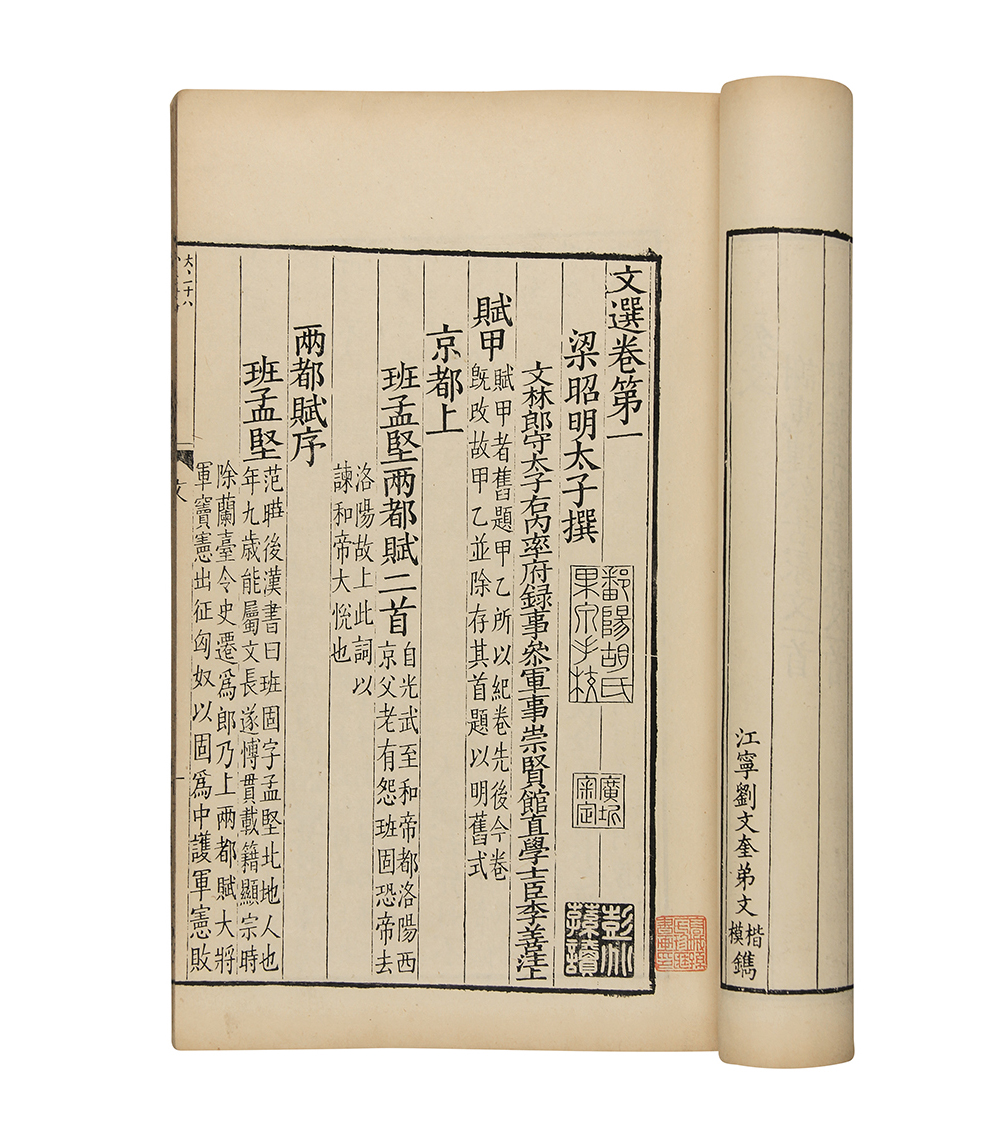 江寧劉文奎弟文楷模鐫
文選卷第一
梁昭明太子撰
鄱陽胡氏
果泉手校
彭州
文林郎守太子右內率府錄事叅軍事崇賢館直學士臣李善注上
賦甲
賦甲者舊題甲乙所以紀卷先後今卷
旣改故甲乙並除存其首題以明舊式
京都上
班孟堅兩都賦二首
自光武至和帝都洛陽西
京父老有怨班固恐帝去
洛陽故上此詞以
諫和帝大悅也
兩都賦序
班孟堅
范曄後漢書曰班固字孟堅北地人也
年九歲能屬文長遂愽貫載籍顯宗時
除蘭臺令史遷爲郎乃上兩都賦大將
軍竇憲出征匈奴以固爲中護軍憲敗
文
一